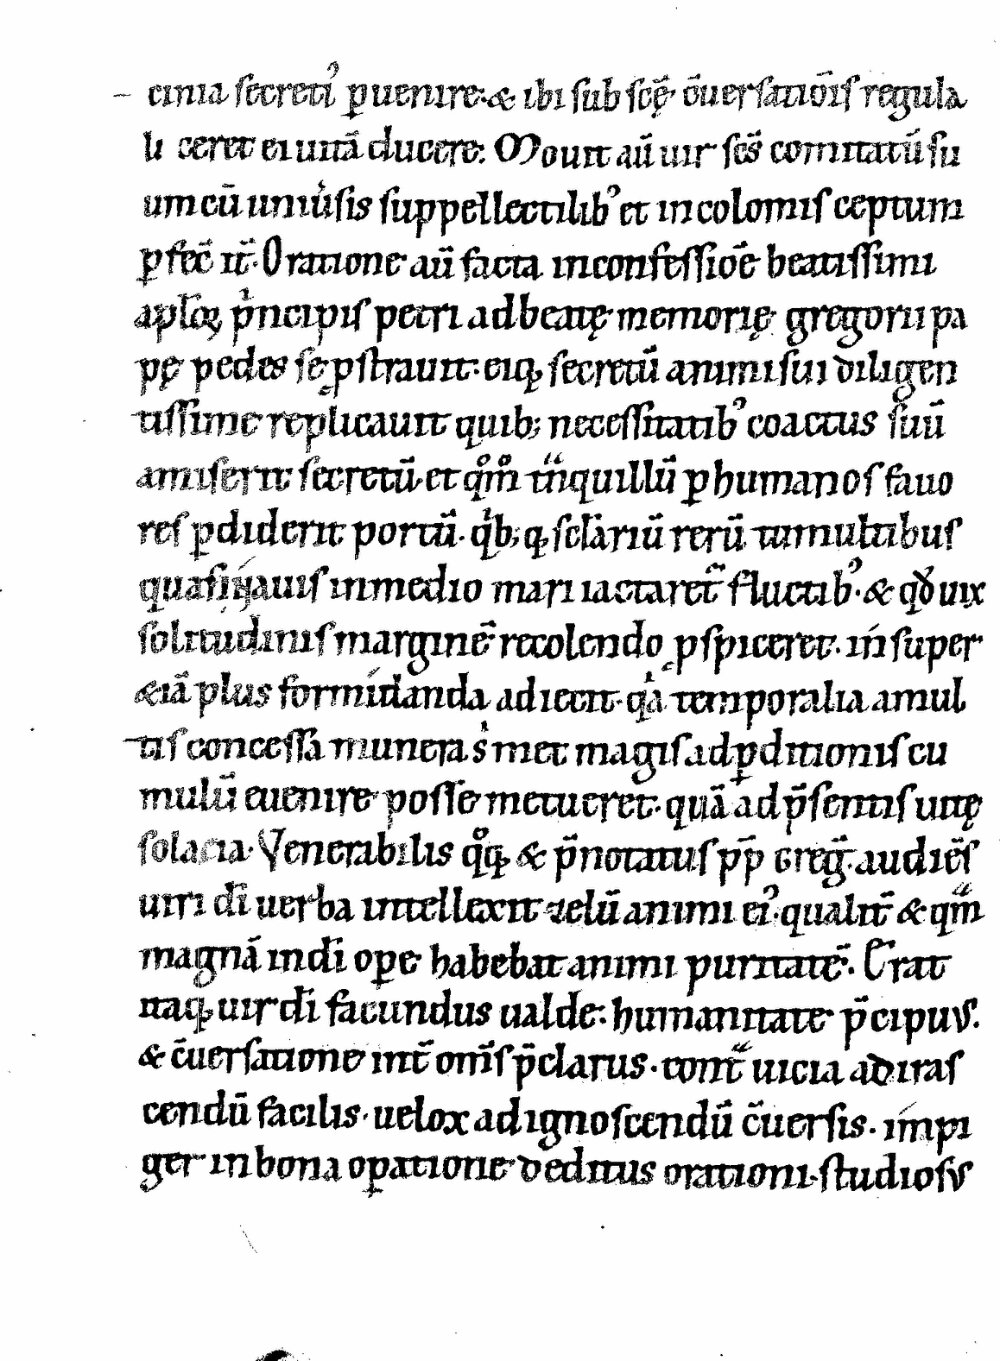 cinia secreti᾽ ꝑuenire· & ibi sub scę̄ ōuersatiōis regula
li ceret ei uitā ducere: Mouit aū uir scs̄ comitatū su
um cū uniu͛sis suppellectilib᾽ et incolomis ceptum
ꝑfec̄ it̄· Oratione aū facta inconfessiōe beatissimi
apl̄oꝝ pͥncipis petri ad beatę memorię gregorii pa
pę pedes se ꝓstrauit· eiꝗ secretū animi sui diligen
tissime replicauit quib; necessitatib᾽ coactus suū
amiserit secretū· et qͦmͦ tᷓnquillū ꝑ humanos fauo
res ꝑdiderit portū· qͥb; ꝗ sclariū rerū tumultibus
quasi nauis in medio mari iactaret᷑ fluctib᾽· & qđ uix
solitudinis marginē recolendo ꝑspiceret· insuper
& iā plus formidanda adiecit· qͥa temporalia a mul
tis concessa munera sͥmet magis ad ꝑditionis cu
mulū euenire posse metueret· quā ad p̄sentis uitę
solacia· Venerabilis qͦꝗ & p̄notatus pp̄ greḡ· audiēs
uiri dī uerba intellexit zelū animi ei᾽· qualit̄ & qᷓm
magnā in dī oꝑe habebat animi puritatē· Erat
itaꝗ uir dī facundus ualde· humanitate p̄cipuus·
& c̄uersatione int̄ om̄s p̄clarus· contᷓ uicia ad iras
cendū facilis· uelox ad ignoscendū c̄uersis· impi
ger in bona oꝑatione deditus orationi· studiosus